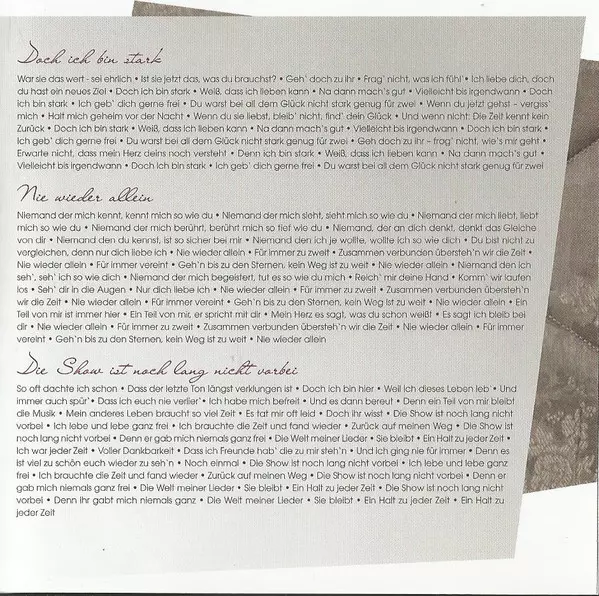 Doch ich bin stark
War sie das wert - sei ehrlich • Ist sie jetzt das, was du brauchst? • Geh` doch zu ihr • Frag` nicht, was ich fühl` • Ich liebe dich, doch
du hast ein neues Ziel • Doch ich bin stark • Weiß, dass ich lieben kann • Na dann mach's gut • Vielleicht bis irgendwann • Doch
ich bin stark • Ich geb` dich gerne frei • Du warst bei all dem Glück nicht stark genug für zwei • Wenn du jetzt gehst – vergiss'
mich • Halt mich geheim vor der Nacht • Wenn du sie liebst, bleib` nicht, find` dein Glück • Und wenn nicht: Die Zeit kennt kein
Zurück • Doch ich bin stark • Weiß, dass ich lieben kann • Na dann mach's gut • Vielleicht bis irgendwann • Doch ich bin stark •
Ich geb` dich gerne frei • Du warst bei all dem Glück nicht stark genug für zwei • Geh doch zu ihr – frag` nicht, wie's mir geht •
Erwarte nicht, dass mein Herz deins noch versteht • Denn ich bin stark • Weiß, dass ich lieben kann • Na dann mach's gut •
Vielleicht bis irgendwann • Doch ich bin stark • Ich geb` dich gerne frei • Du warst bei all dem Glück nicht stark genug für zwei
Nie wieder allein
Niemand der mich kennt, kennt mich so wie du • Niemand der mich sieht, sieht mich so wie du • Niemand der mich liebt, liebt
mich so wie du • Niemand der mich berührt, berührt mich so tief wie du • Niemand, der an dich denkt, denkt das Gleiche
von dir • Niemand den du kennst, ist so sicher bei mir • Niemand den ich je wollte, wollte ich so wie dich • Du bist nicht zu
vergleichen, denn nur dich liebe ich • Nie wieder allein • Für immer zu zweit • Zusammen verbunden übersteh'n wir die Zeit •
Nie wieder allein • Für immer vereint • Geh'n bis zu den Sternen, kein Weg ist zu weit • Nie wieder allein • Niemand den ich
seh', seh' ich so wie dich • Niemand der mich begeistert, tut es so wie du mich • Reich' mir deine Hand • Komm' wir laufen
los • Seh' dir in die Augen • Nur dich liebe ich • Nie wieder allein • Für immer zu zweit • Zusammen verbunden übersteh'n
wir die Zeit • Nie wieder allein • Für immer vereint • Geh'n bis zu den Sternen, kein Weg ist zu weit • Nie wieder allein • Ein
Teil von mir ist immer hier • Ein Teil von mir, er spricht mit dir • Mein Herz es sagt, was du schon weißt • Es sagt ich bleib bei
dir • Nie wieder allein • Für immer zu zweit • Zusammen verbunden übersteh'n wir die Zeit • Nie wieder allein • Für immer
vereint • Geh'n bis zu den Sternen, kein Weg ist zu weit • Nie wieder allein
Die Show ist noch lang nicht vorbei
So oft dachte ich schon • Dass der letzte Ton längst verklungen ist • Doch ich bin hier • Weil ich dieses Leben leb` • Und
immer auch spür`• Dass ich euch nie verlier`• Ich habe mich befreit • Und es dann bereut • Denn ein Teil von mir bleibt
die Musik • Mein anderes Leben braucht so viel Zeit • Es tat mir oft leid • Doch ihr wisst • Die Show ist noch lang nicht
vorbei • Ich lebe und lebe ganz frei • Ich brauchte die Zeit und fand wieder • Zurück auf meinen Weg • Die Show ist
noch lang nicht vorbei • Denn er gab mich niemals ganz frei • Die Welt meiner Lieder • Sie bleibt • Ein Halt zu jeder Zeit •
Ich war jeder Zeit • Voller Dankbarkeit • Dass ich Freunde hab' die zu mir steh'n • Und ich ging nie für immer • Denn es
ist viel zu schön euch wieder zu seh'n • Noch einmal • Die Show ist noch lang nicht vorbei • Ich lebe und lebe ganz
frei • Ich brauchte die Zeit und fand wieder • Zurück auf meinen Weg • Die Show ist noch lang nicht vorbei • Denn er
gab mich niemals ganz frei • Die Welt meiner Lieder • Sie bleibt • Ein Halt zu jeder Zeit • Die Show ist noch lang nicht
vorbei • Denn ihr gabt mich niemals ganz • Die Welt meiner Lieder • Sie bleibt • Ein Halt zu jeder Zeit • Ein Halt zu
jeder Zeit